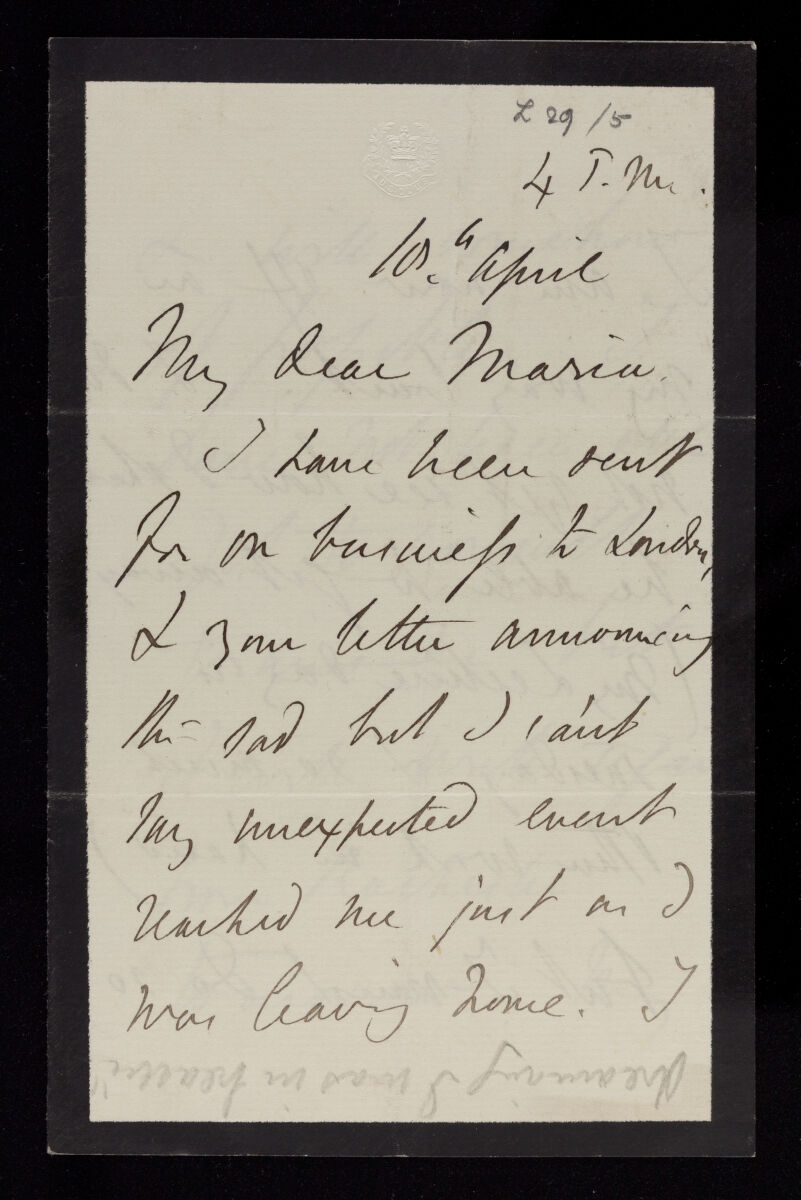 L 29/5
4 T. M.
10th April
My dear Maria.
I have been sent
for on business to London,
& your letter announcing
the sad but I can't
say unexpected event
reached me just as I
was leaving home. I